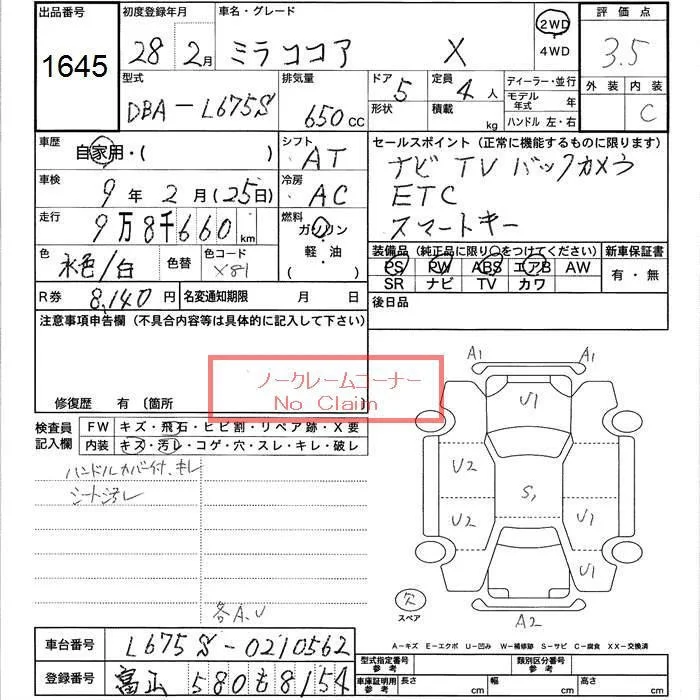 出品番号 初度登録年月 車名・グレード 評価点
1645 28 2月 ミラココア X 2WD 4WD 3.5
型式 排気量 ドア 5 定員 4人 ディーラー・並行 外装 内装
DBA-L675S 650cc 形状 積載 kg モデル年式 年 C
ハンドル 左・右
車歴 自家用・( ) シフト AT セールスポイント(正常に機能するものに限ります)
ナビ TV バックカメラ
車検 9年2月(25日) 冷房 AC ETC
走行 9万8千660km 燃料 ガソリン スマートキー
軽・油
( )
色 水色/白 色替 色コード X81 装備品(純正品に限り○をつけてください) 新車保証書
PS PW ABS エアB AW 有・無
SR ナビ TV カワ
R券 8,140円 名変通知期限 月 日 後日品
注意事項申告欄(不具合内容等は具体的に記入して下さい)
ノークレームコーナー
No Claim
修復歴 有〔箇所
検査員記入欄 FW キズ・飛石・ヒビ割・リペア跡・X要
内装 キズ・汚レ・コゲ・穴・スレ・キレ・破レ
ハンドルカバー付、キレ
シート汚レ
各A.U
A1 A1
U1
U2
S1
U2 U1
U1
欠
スペア
A2
A-キズ E-エクボ U-凹み W-補修跡 S-サビ C-腐食 XX-交換済
車台番号 L675S-0210562
登録番号 富山 580 も 8154
型式指定番号 参考 類別区分番号 参考
車庫証明用 参考 長さ cm 幅 cm 高さ cm